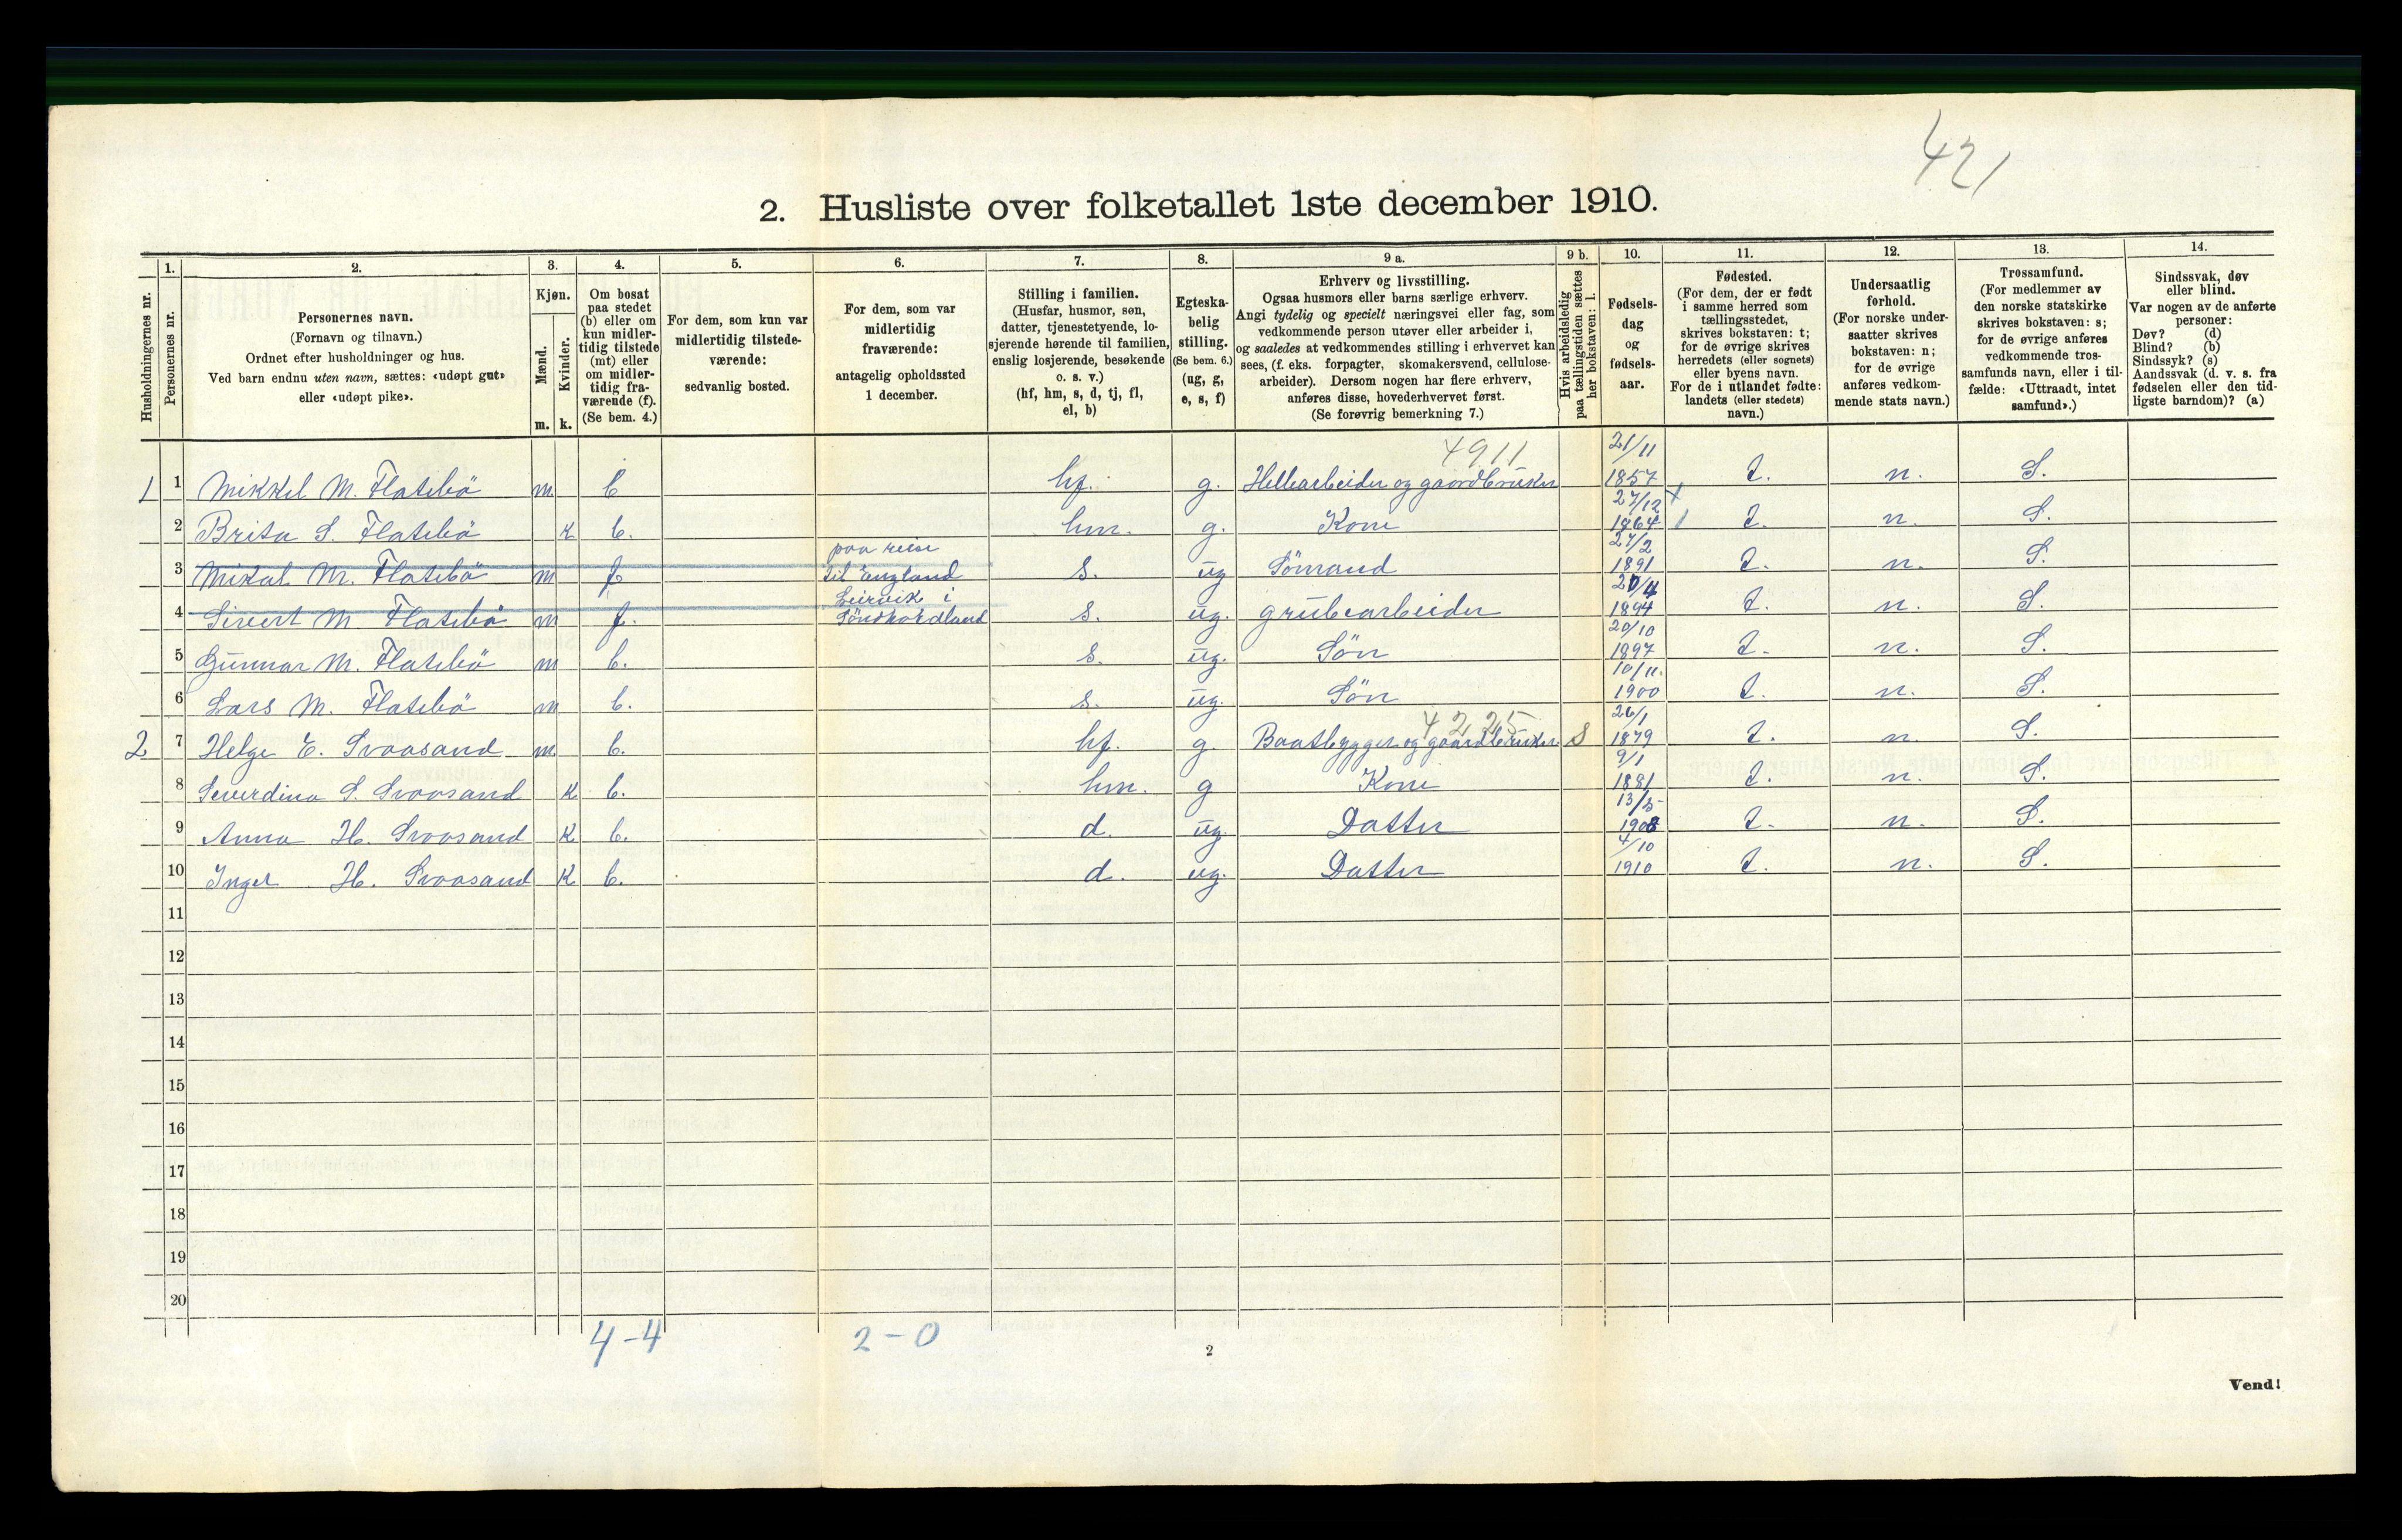 421
2. Husliste over folketallet 1ste december 1910.
Husholdningernes nr.
1.
Personernes nr.
2.
Personernes navn.
(Fornavn og tilnavn.)
Ordnet efter husholdninger og hus.
Ved barn endnu uten navn, sættes: «udøpt gut»
eller «udøpt pike».
3.
Kjøn.
Mænd.
Kvinder.
m. k.
4.
Om bosat
paa stedet
(b) eller om
kun midler-
tidig tilstede
(mt) eller
om midler-
tidig fra-
værende (f).
(Se bem. 4.)
5.
For dem, som kun var
midlertidig tilstede-
værende:
sedvanlig bosted.
6.
For dem, som var
midlertidig
fraværende:
antagelig opholdssted
1 december.
7.
Stilling i familien.
(Husfar, husmor, søn,
datter, tjenestetyende, lo-
sjerende hørende til familien,
enslig losjerende, besøkende
o. s. v.)
(hf, hm, s, d, tj, fl,
el, b)
8.
Egteska-
belig
stilling.
(Se bem. 6.)
(ug, g,
e, s, f)
9 a.
Erhverv og livsstilling.
Ogsaa husmors eller barns særlige erhverv.
Angi tydelig og specielt næringsvei eller fag, som
vedkommende person utøver eller arbeider i,
og saaledes at vedkommendes stilling i erhvervet kan
sees, (f. eks. forpagter, skomakersvend, cellulose-
arbeider). Dersom nogen har flere erhverv,
anføres disse, hovederhvervet først.
(Se forøvrig bemerkning 7.)
9 b.
Hvis arbeidsledig
paa tællingstiden sættes
her bokstaven: l.
10.
Fødsels-
dag
og
fødsels-
aar.
11.
Fødested.
(For dem, der er født
i samme herred som
tællingsstedet,
skrives bokstaven: t;
for de øvrige skrives
herredets (eller sognets)
eller byens navn.
For de i utlandet fødte:
landets (eller stedets)
navn.)
12.
Undersaatlig
forhold.
(For norske under-
saatter skrives
bokstaven: n;
for de øvrige
anføres vedkom-
mende stats navn.)
13.
Trossamfund.
(For medlemmer av
den norske statskirke
skrives bokstaven: s;
for de øvrige anføres
vedkommende tros-
samfunds navn, eller i til-
fælde: «Uttraadt, intet
samfund».)
14.
Sindssvak, døv
eller blind.
Var nogen av de anførte
personer:
Døv? (d)
Blind? (b)
Sindssyk? (s)
Aandssvak (d. v. s. fra
fødselen eller den tid-
ligste barndom)? (a)
4911
1 1 Mikkel M. Flatebö m b hf. g. Hellearbeider og gaardbruker 21/11 1857 t. n. S.
2 Brita S. Flatebö k b. hm. g. Kone 27/12 1864 t. n. S.
3 Mikal M. Flatebö m f paa reise til England s. ug Sömand 27/2 1891 t. n. S.
4 Sivert M Flatebö m f. Leirvik i Söndhordland s. ug. grubearbeider 1894 t. n. S.
5 Gunnar M. Flatebö m b. s. ug. Sön 20/10 1897 t. n. S.
6 Lars M. Flatebö m b. s. ug. Sön 10/11. 1900 t. n. S.
4225
2 7 Helge E. Svaasand m. b. hf. g. Baatbygger og gaardbruker S 26/1 1879 t. n. S.
8 Severdina S. Svaasand k b. hm. g Kone 9/1 1881 t. n. S.
9 Anna H. Svaasand k b. d. ug. Datter 1908 t. n. S.
10 Inger H. Svaasand k b. d. ug. Datter 4/10 1910 t. n. S.
11
12
13
14
15
16
17
18
19
20
4-4 2-0
2
Vend!